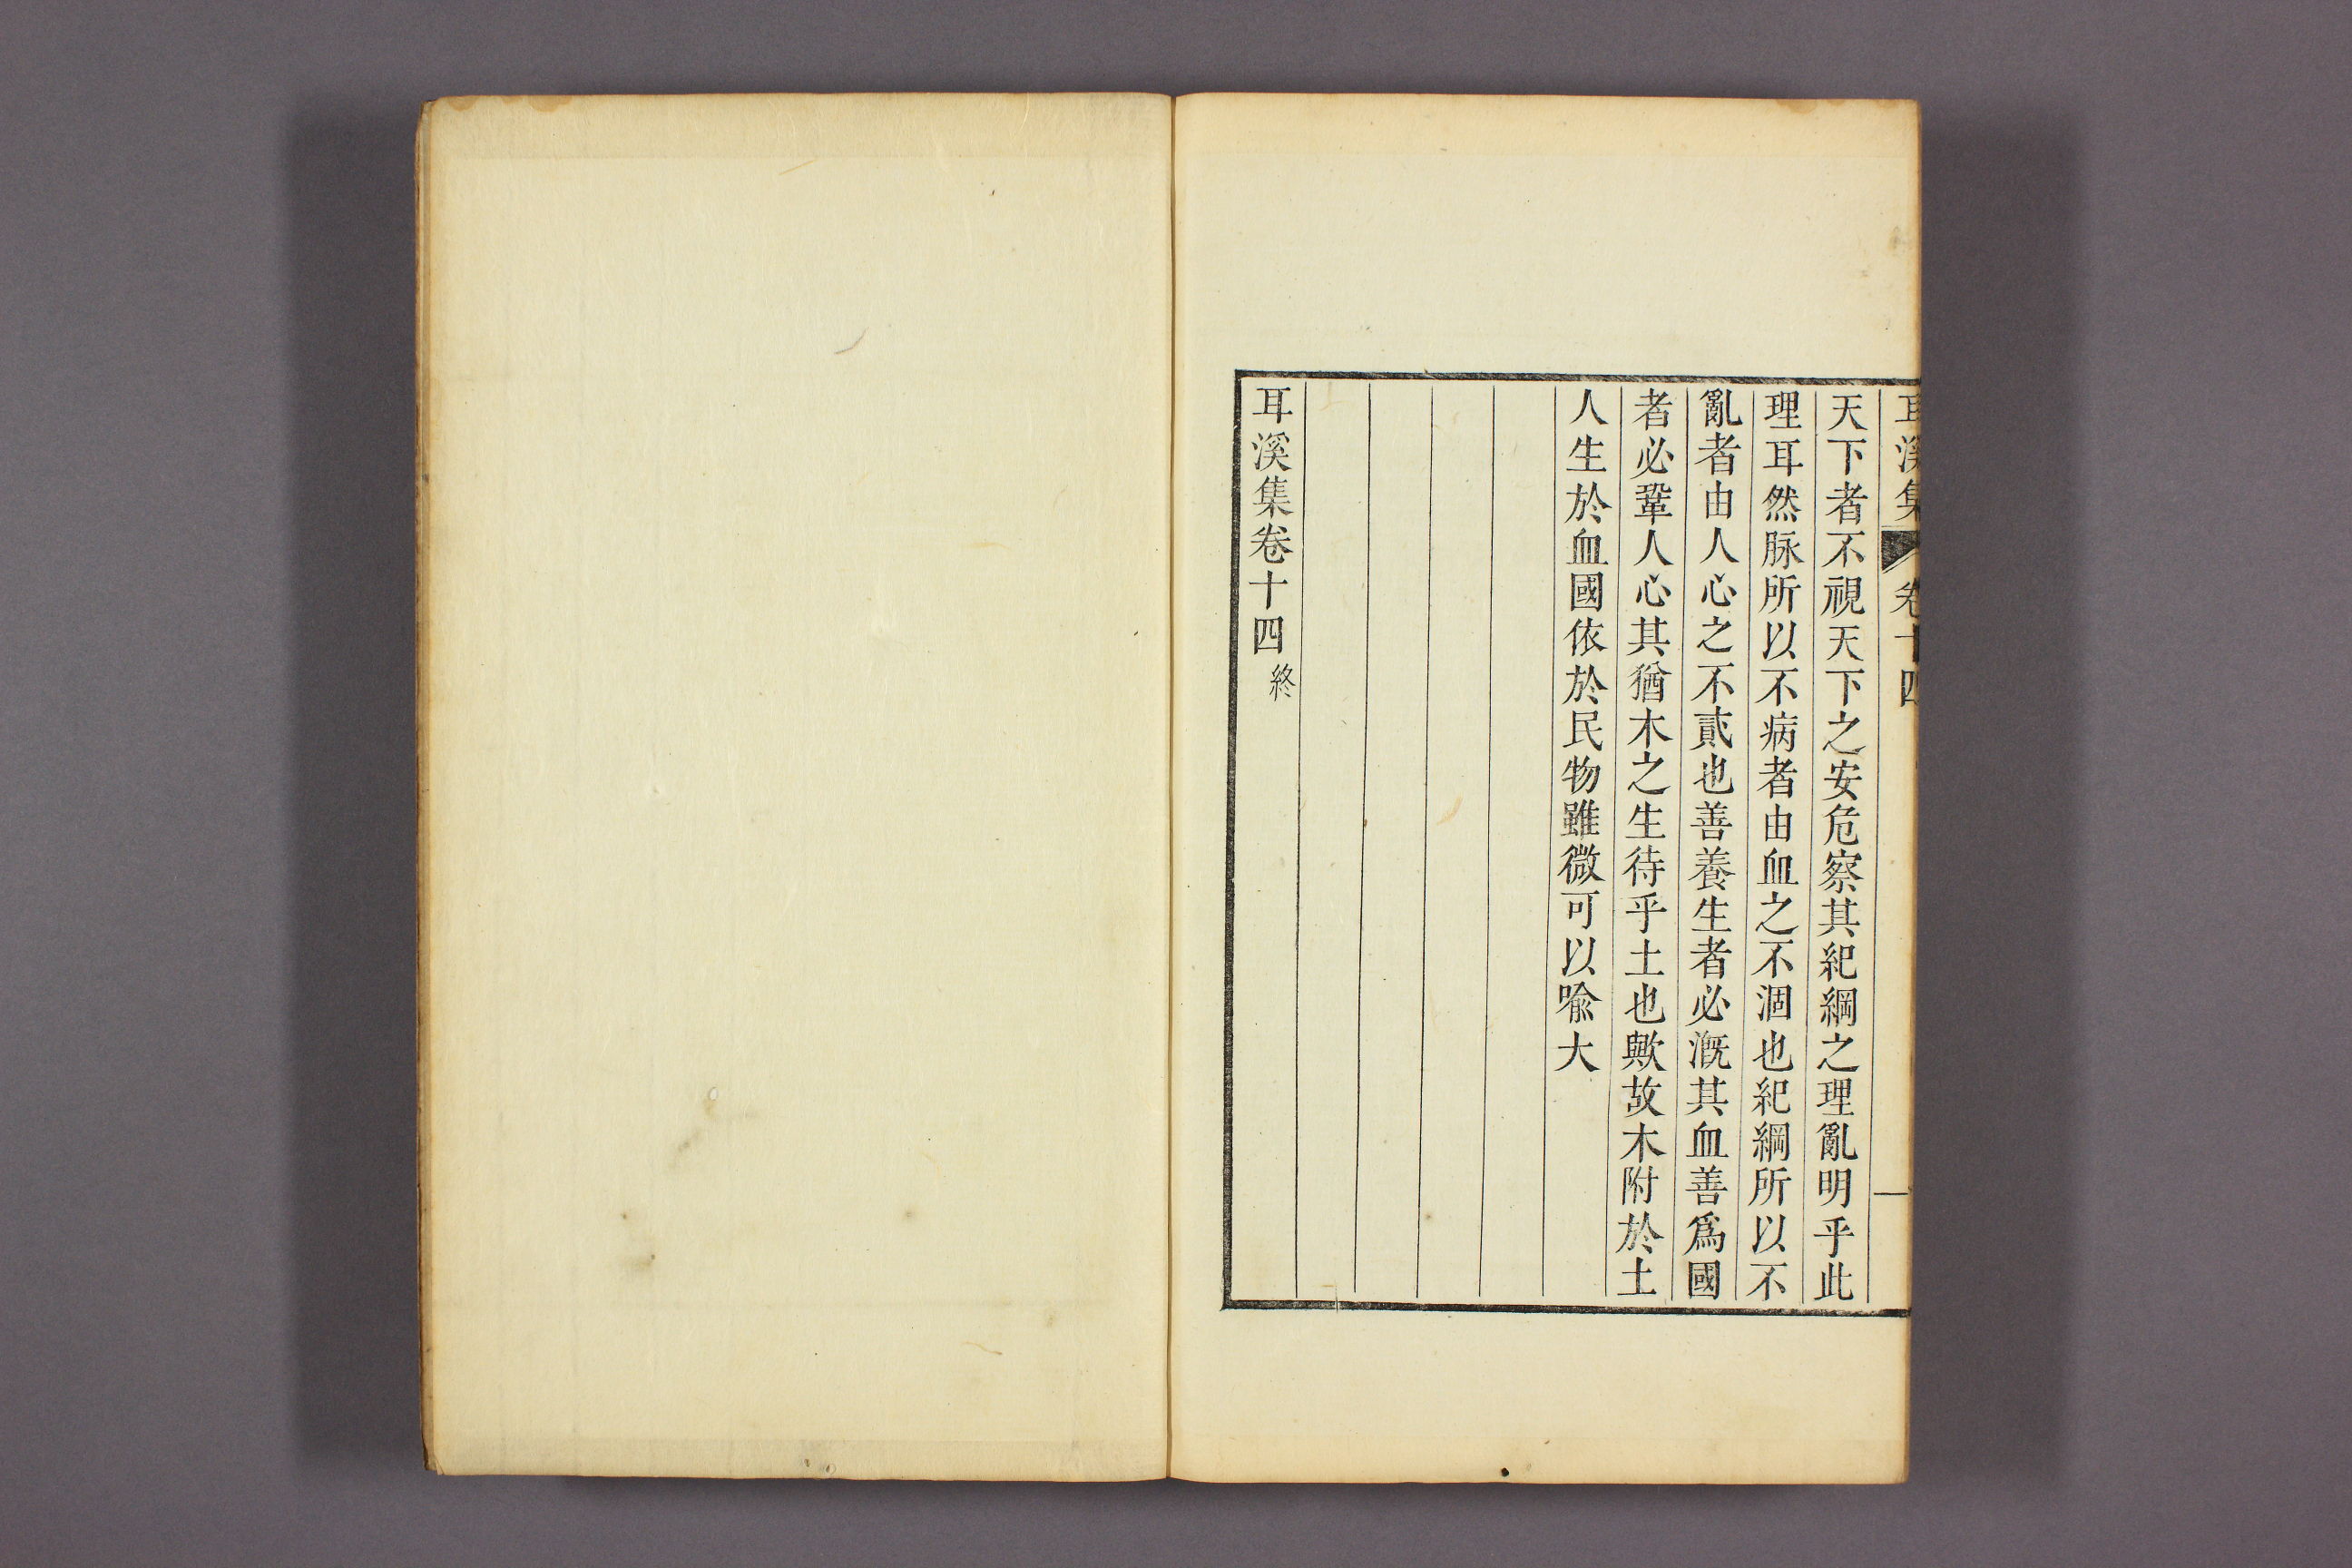 耳溪集 卷十四 一
天下者不視天下之安危察其紀綱之理亂明乎此
理耳然脉所以不病者由血之不涸也紀綱所以不
亂者由人心之不貳也善養生者必漑其血善爲國
者必鞏人心其猶木之生待乎土也歟故木附於土
人生於血國依於民物雖微可以喩大
耳溪集卷十四終